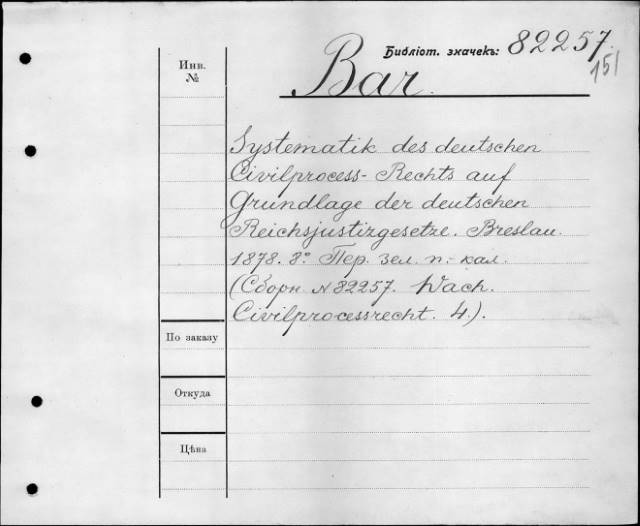 Библіот. значекъ: 82257.
151
Инв.
№
Bar.
Systematik des deutschen
Civilprocess-Rechts auf
Grundlage der deutschen
Reichsjustizgesetze. Breslau.
1878. 8º Пер. зел. п.-кал.
(Сборн. N 82257. Wach.
Civilprocessrecht. 4.).
По заказу
Откуда
Цѣна